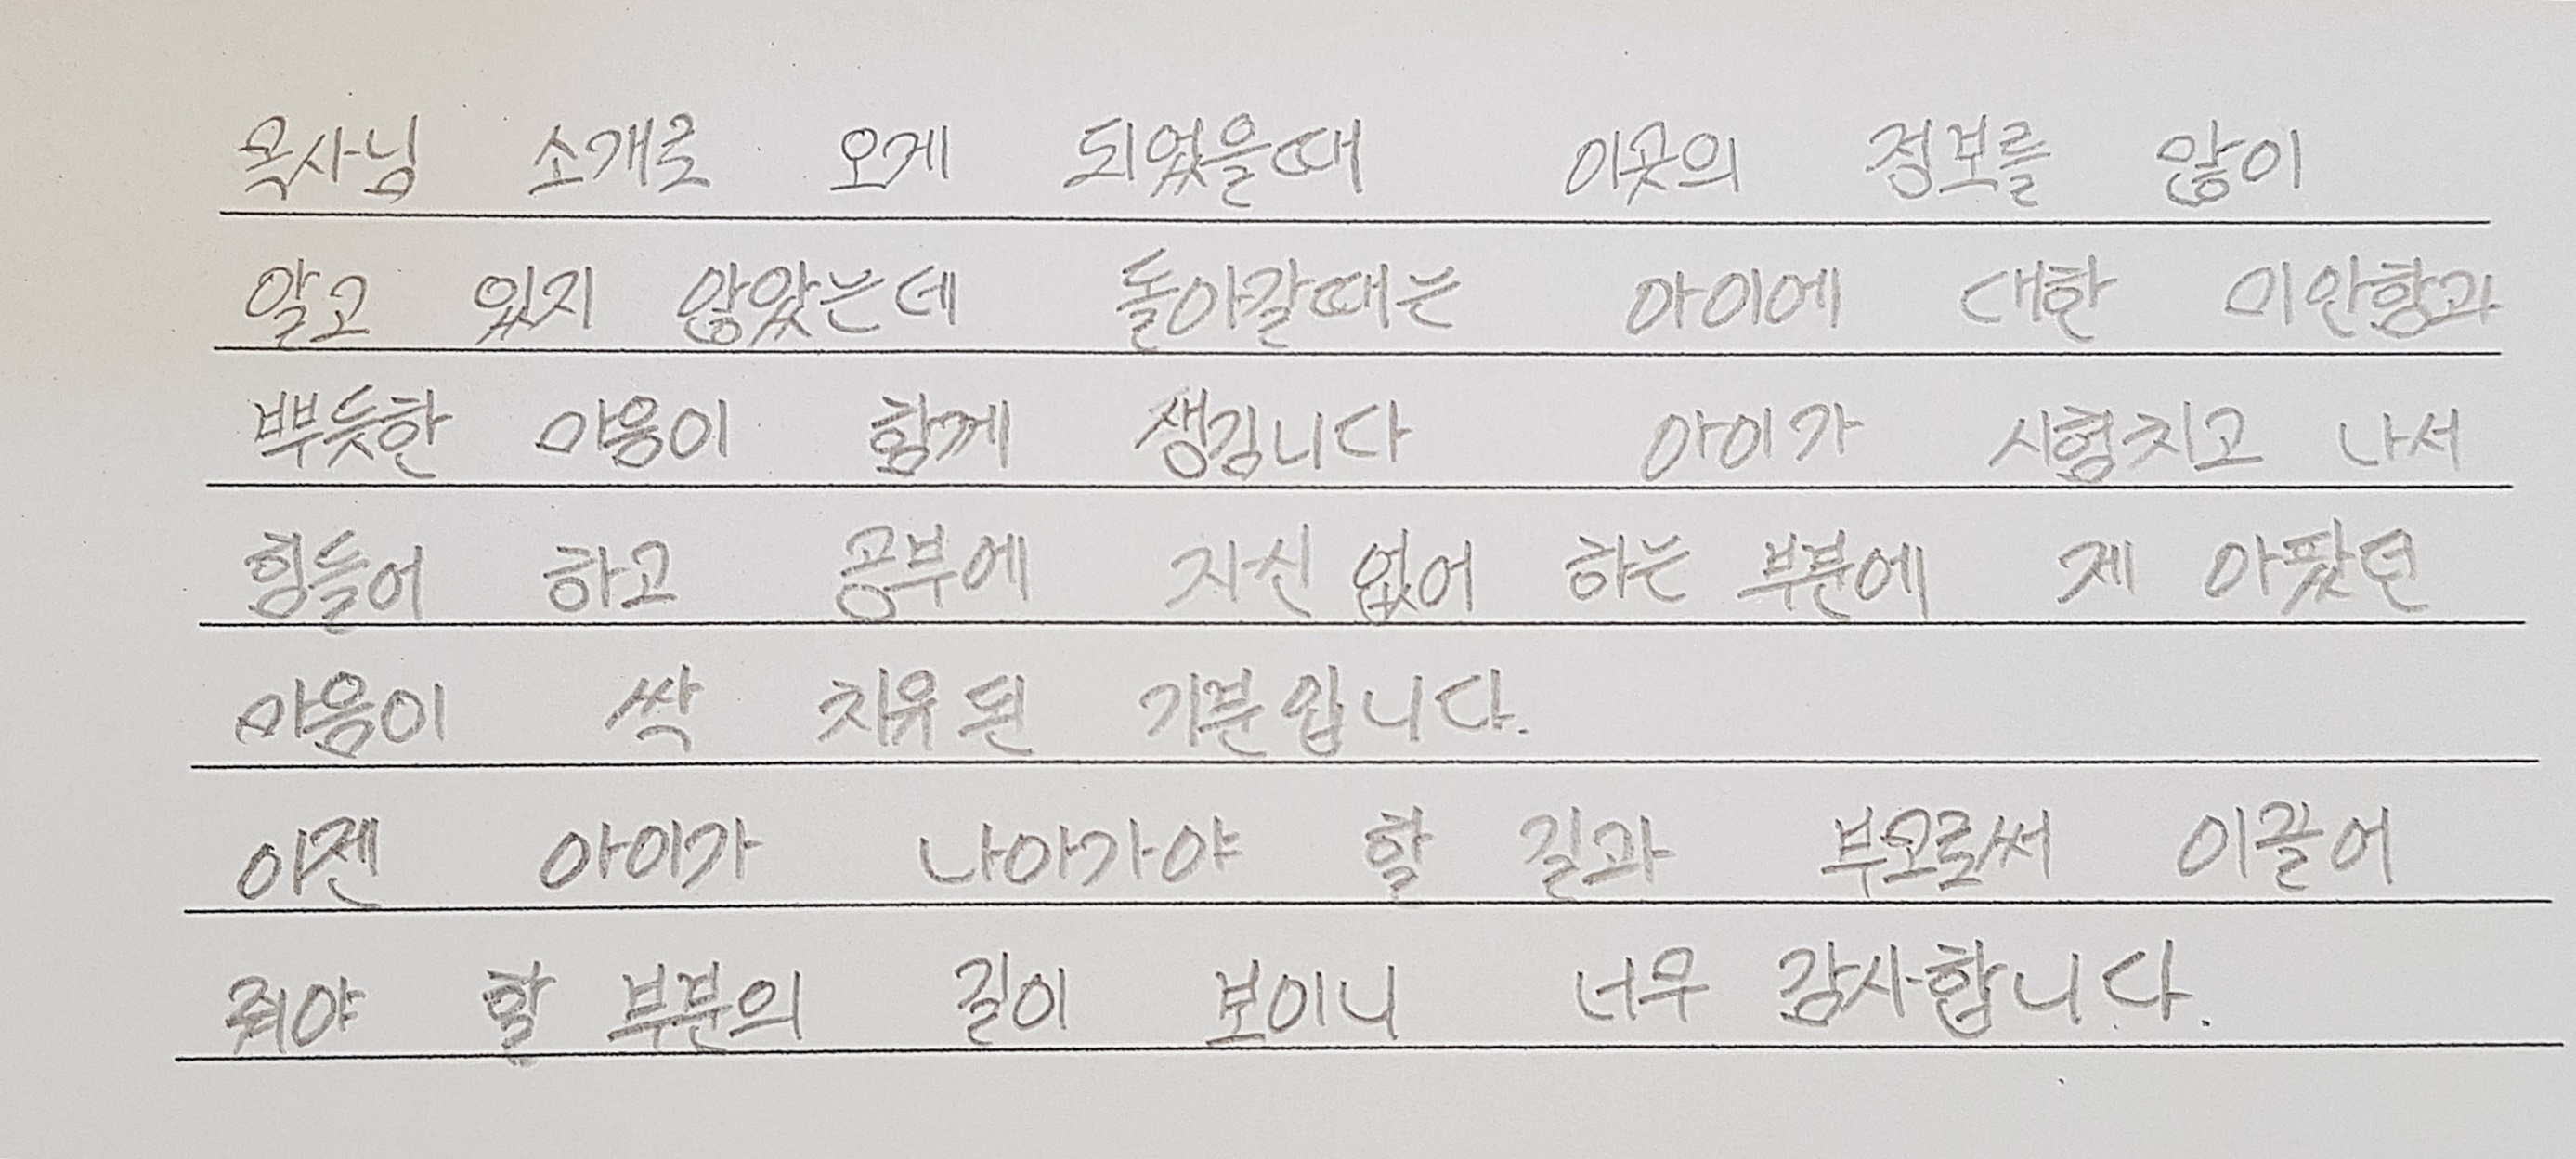 목사님 소개로 오게 되었을때 이곳의 정보를 많이
알고 있지 않았는데 돌아갈때는 아이에 대한 미안함과
뿌듯한 마음이 함께 생깁니다 아이가 시험치고 나서
힘들어 하고 공부에 자신 없어 하는 부분에 제 아팠던
마음이 싹 치유된 기분입니다.
이젠 아이가 나아가야 할 길과 부모로써 이끌어
줘야 할 부분의 길이 보이니 너무 감사합니다.